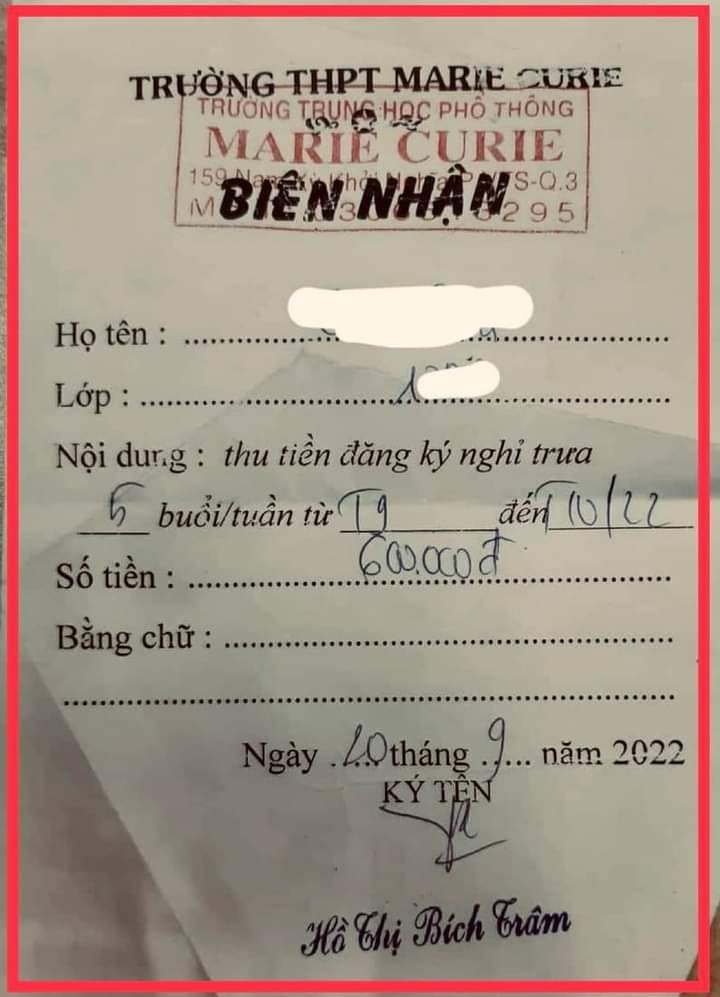 TRƯỜNG THPT MARIE CURIE
TRƯỜNG TRUNG HỌC PHỔ THÔNG
MARIE CURIE
159 Nam Kỳ Khởi Nghĩa P. S-Q.3
BIÊN NHẬN
M 295
Họ tên :
Lớp : 1
Nội dung : thu tiền đăng ký nghỉ trưa
5 buổi/tuần từ T9 đến T10/22
Số tiền : 600.000đ
Bằng chữ :
Ngày 20 tháng 9 năm 2022
KÝ TÊN
Hồ Thị Bích Trâm